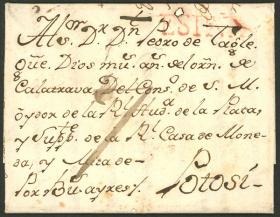 ESPAÑA
Al Sor. Dn. Pedro de Tagle
que Dios mu. an. del orn. de
Calatrava del Cons. de S. M.
oydor de la Rl. Auda. de la Plata,
y Supte. de la Rl. Casa de Mone
da, y Mita de
Por Bus. ayres, Potosi